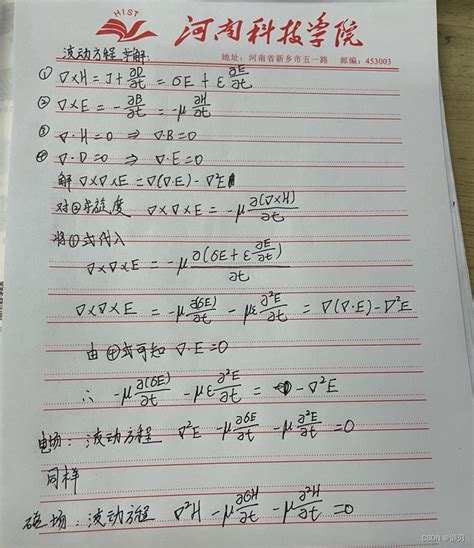 HIST
河南科技学院
地址：河南省新乡市五一路 邮编：453003
波动方程求解:
① ∇×H = J+∂D/∂t = σE + ε ∂E/∂t
② ∇×E = -∂B/∂t = -μ ∂H/∂t
③ ∇·H=0 ⇒ ∇·B=0
④ ∇·D=0 ⇒ ∇·E=0
解 ∇×∇×E = ∇(∇·E) - ∇²E
对②求旋度 ∇×∇×E = -μ ∂(∇×H)/∂t
将①式代入
∇×∇×E = -μ ∂(σE + ε ∂E/∂t)/∂t
∇×∇×E = -μ ∂(σE)/∂t - με ∂²E/∂t = ∇(∇·E) - ∇²E
由④式可知 ∇·E=0
∴ -μ ∂(σE)/∂t - με ∂²E/∂t = -∇²E
电场: 波动方程 ∇²E - μ ∂σE/∂t - μ ∂²E/∂t = 0
同样
磁场: 波动方程 ∇²H - μ ∂σH/∂t - μ ∂²H/∂t = 0